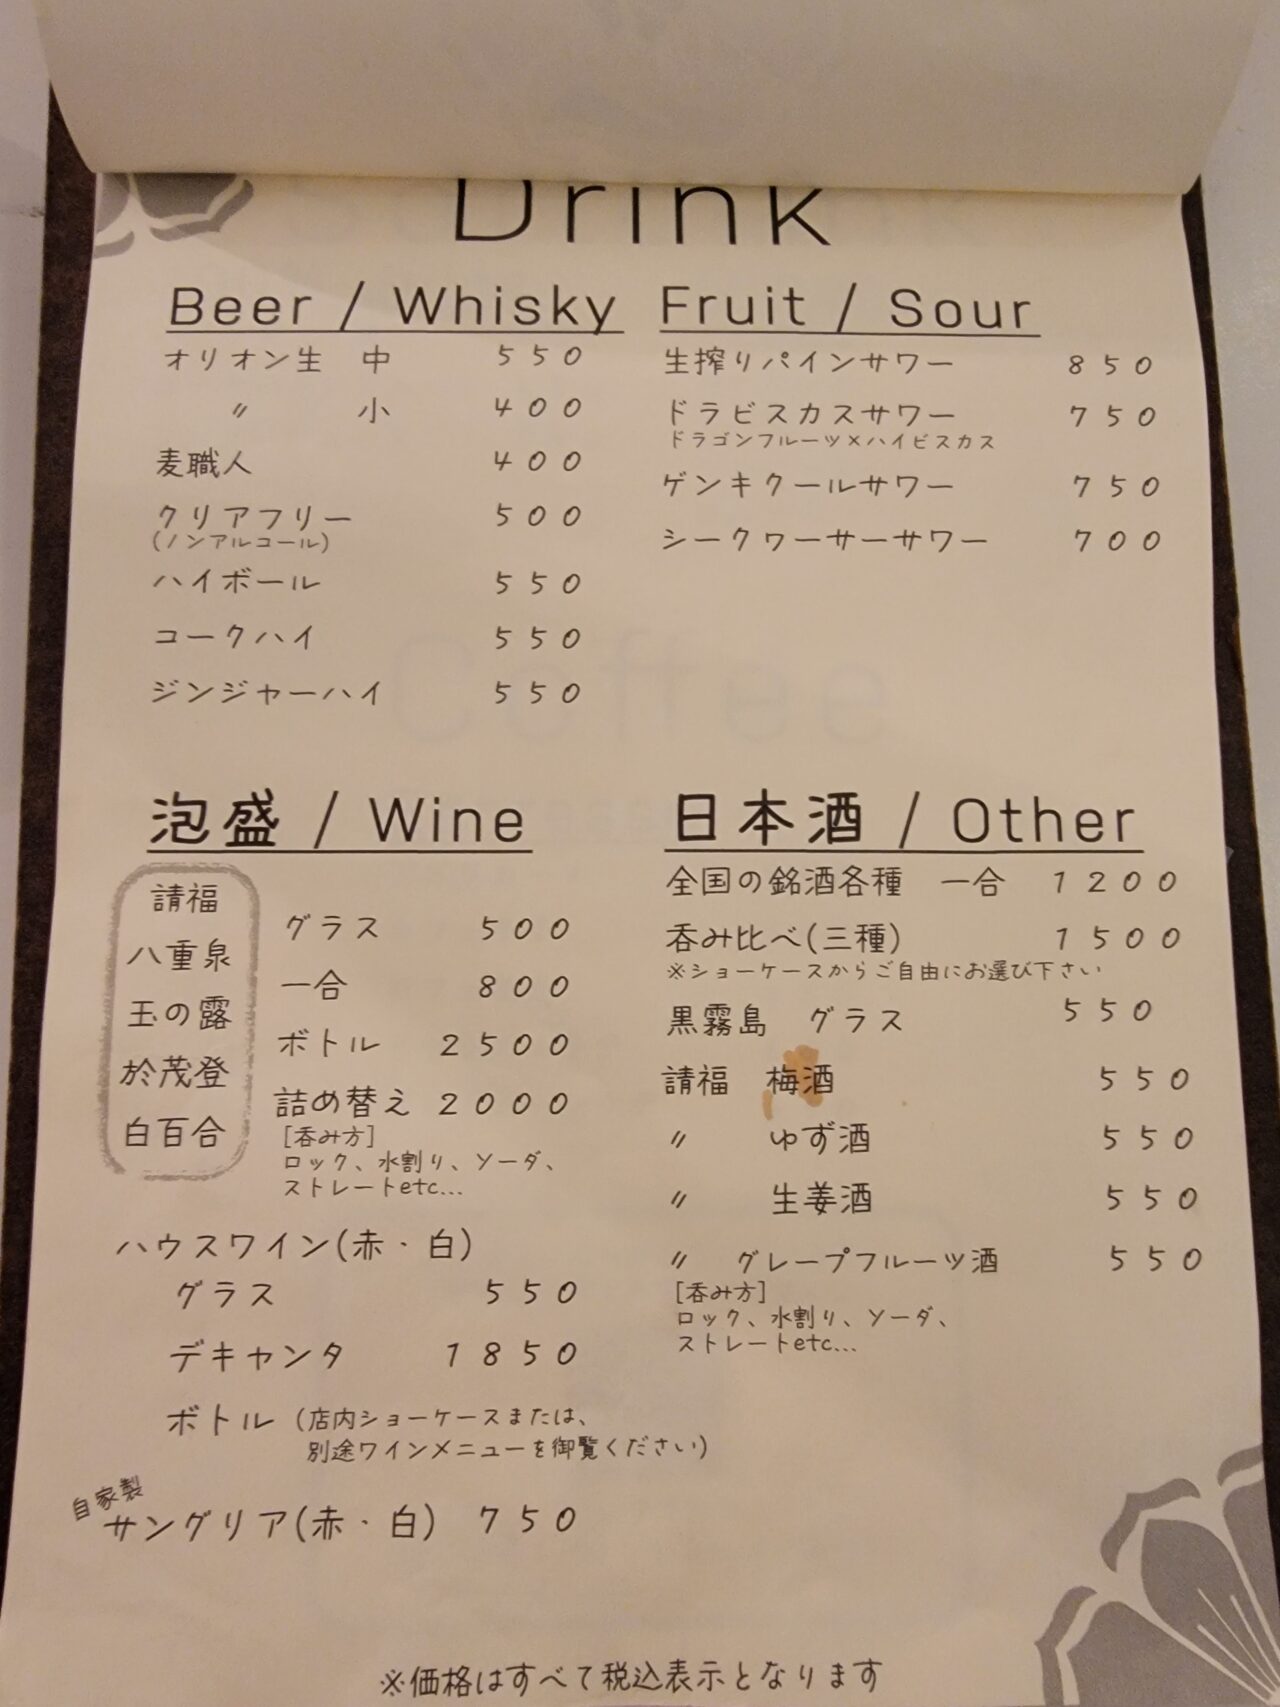 Drink
Beer / Whisky
オリオン生　中　550
〃　小　400
麦職人　400
クリアフリー　500
(ノンアルコール)
ハイボール　550
コークハイ　550
ジンジャーハイ　550
Fruit / Sour
生搾りパインサワー　850
ドラビスカスサワー　750
ドラゴンフルーツ×ハイビスカス
ゲンキクールサワー　750
シークヮーサーサワー　700
泡盛 / Wine
請福
八重泉
玉の露
於茂登
白百合
グラス　500
一合　800
ボトル　2500
詰め替え　2000
[呑み方]
ロック、水割り、ソーダ、
ストレートetc...
ハウスワイン(赤・白)
グラス　550
デキャンタ　1850
ボトル（店内ショーケースまたは、
別途ワインメニューを御覧ください）
自家製
サングリア(赤・白)　750
日本酒 / Other
全国の銘酒各種　一合　1200
呑み比べ(三種)　1500
※ショーケースからご自由にお選び下さい
黒霧島　グラス　550
請福　梅酒　550
〃　ゆず酒　550
〃　生姜酒　550
〃　グレープフルーツ酒　550
[呑み方]
ロック、水割り、ソーダ、
ストレートetc...
※価格はすべて税込表示となります
Coffee